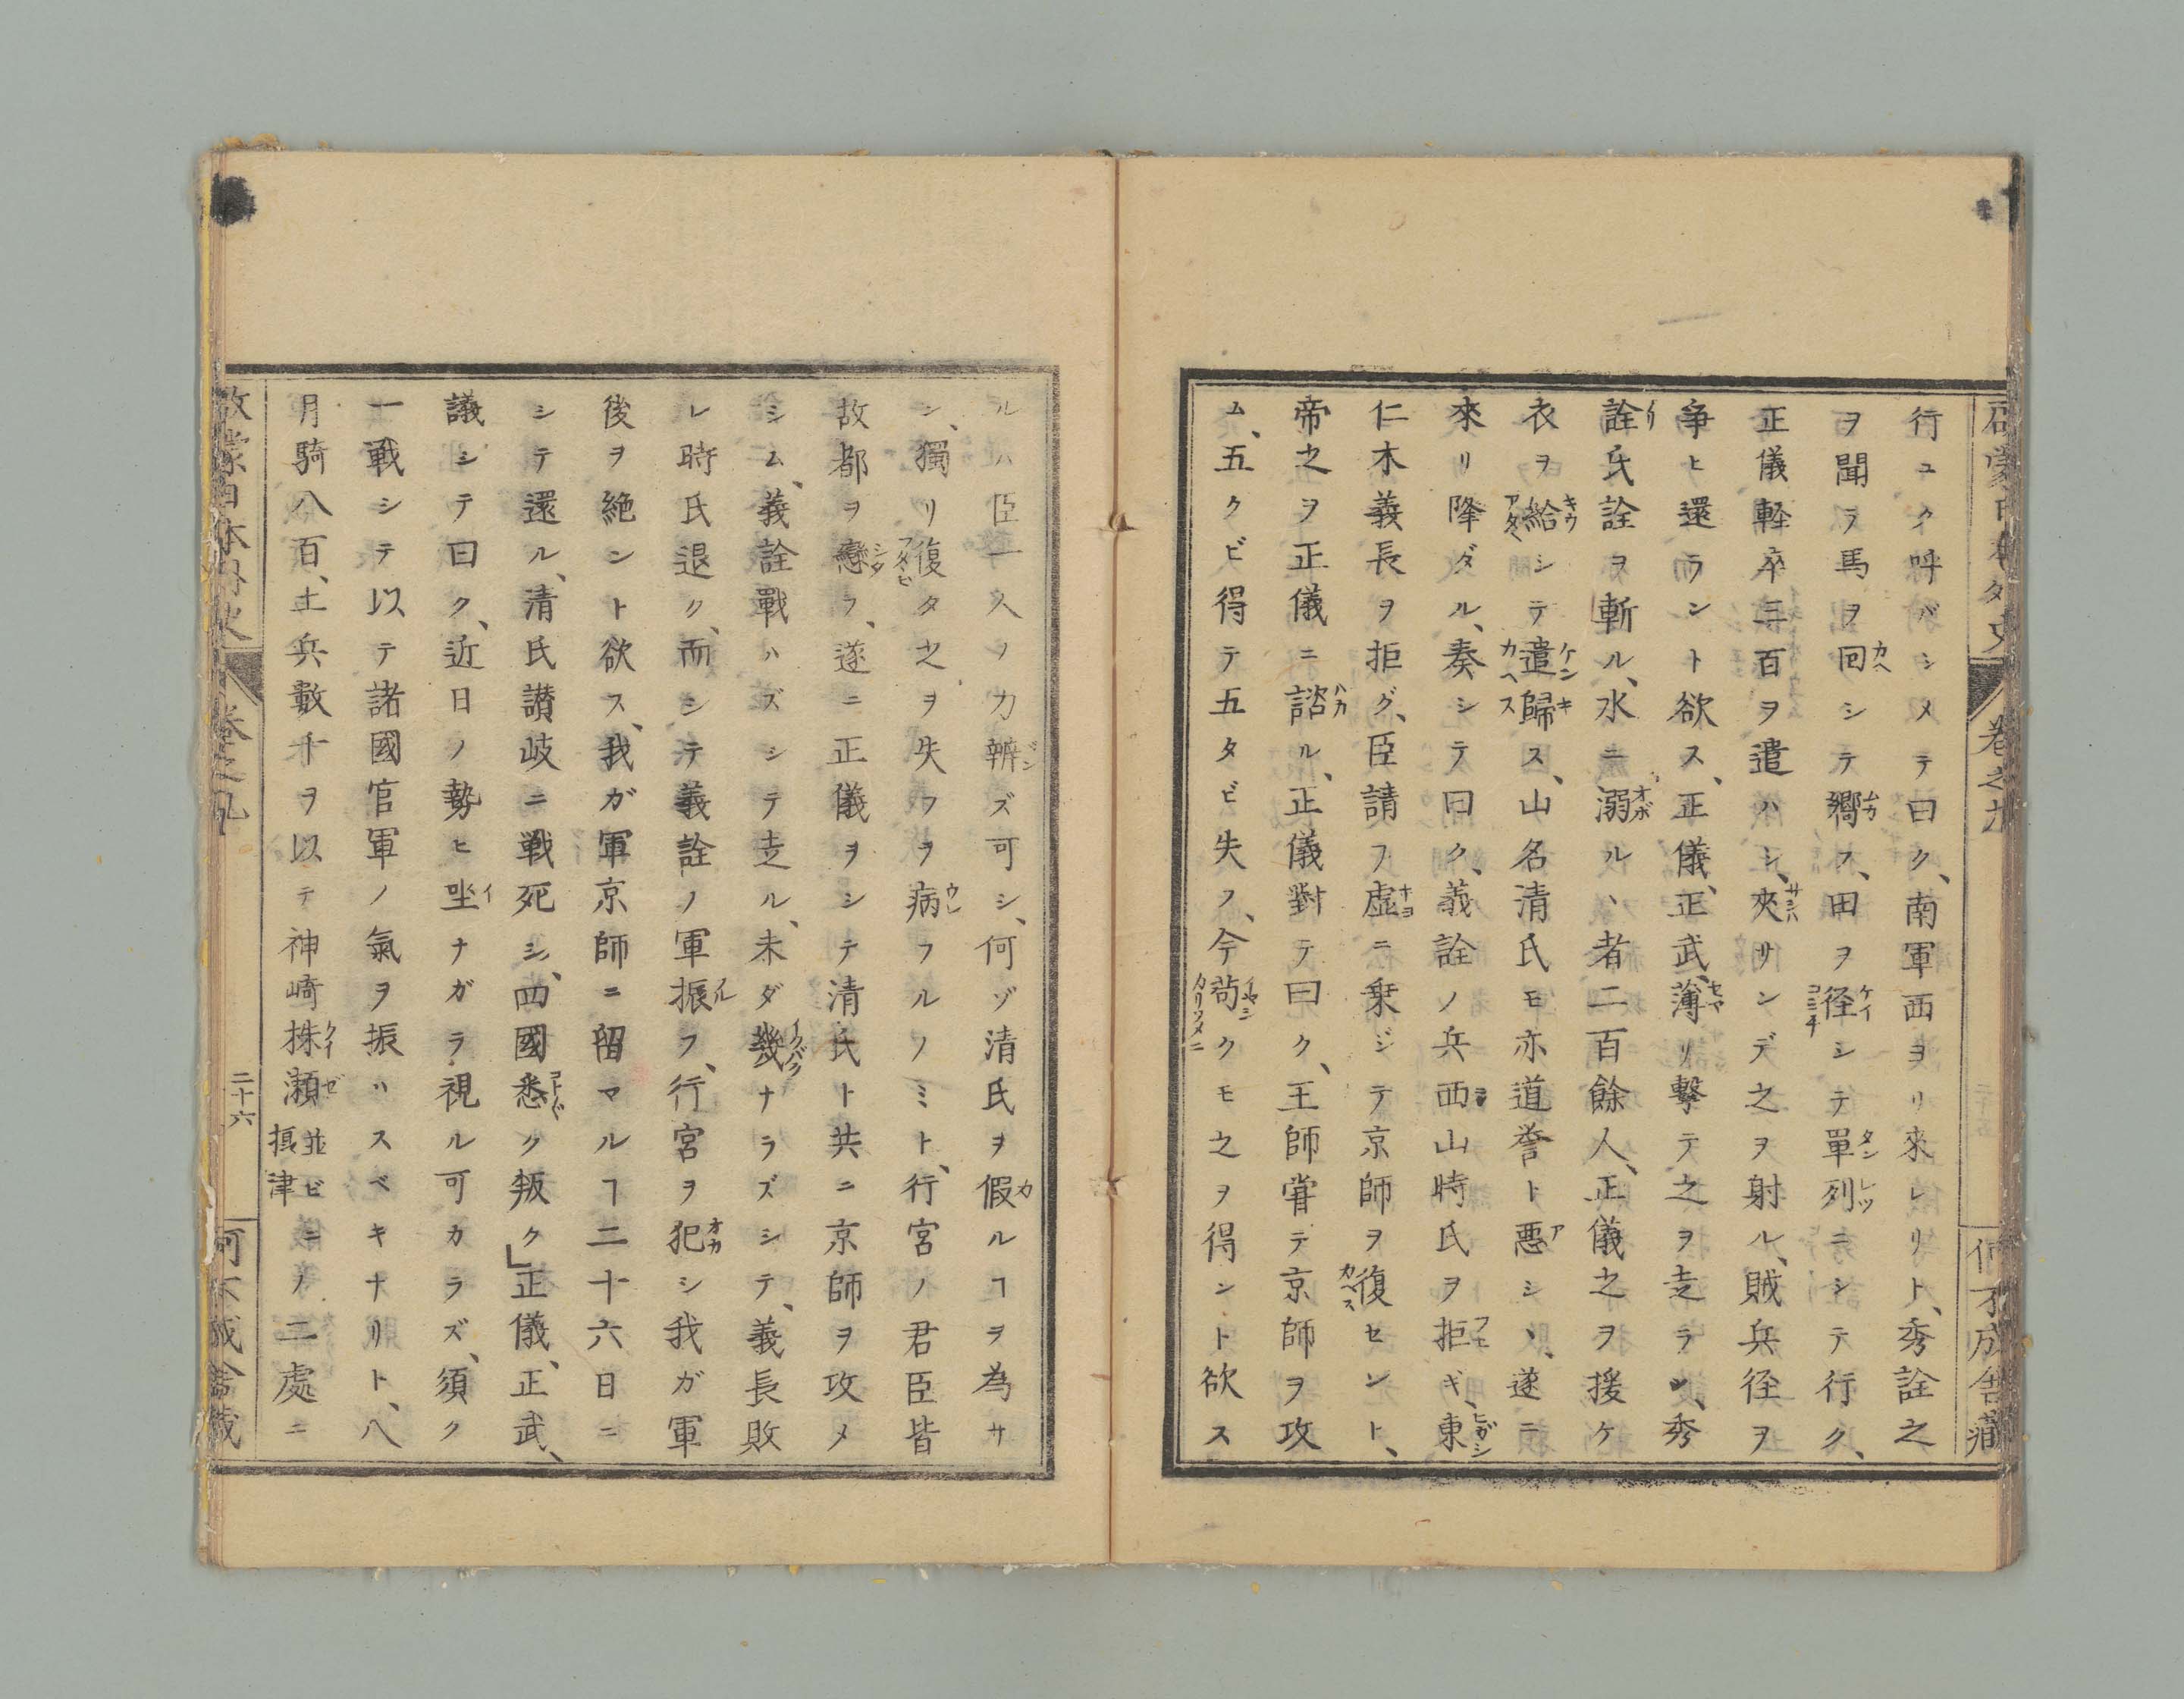 啓蒙日本外史 巻之九 何不成舎藏
行ユク呼バシメテ曰ク、南軍西ヨリ來レリト、秀詮之
ヲ聞ラ馬ヲ囘シテ嚮フ、田ヲ径シテ單列ニシテ行ク、
正儀軽卒三百ヲ遣ハシ、夾サンデ之ヲ射ル、賊兵径ヲ
争ヒ還ラント欲ス、正儀、正武、薄リ撃テ之ヲ走ラシ、秀
詮氏詮ヲ斬ル、水ニ溺ルヽ者二百餘人、正儀之ヲ援ケ
衣ヲ給シテ遣歸ス、山名清氏モ亦道誉ト悪シヽ、遂ニ
來リ降ダル、奏シテ曰ク、義詮ノ兵西山時氏ヲ拒ギ、東
仁木義長ヲ拒グ、臣請フ虚ニ乗ジテ京師ヲ復セント、
帝之ヲ正儀ニ諮ル、正儀對テ曰ク、王師甞テ京師ヲ攻
ム、五クビ得テ五タビ失フ、今苟クモ之ヲ得ント欲ス
ル臣一人ノ力辨ズ可シ、何ゾ清氏ヲ假ルヿヲ為サ
ン、獨リ復タ之ヲ失フヲ病フルノミト、行宮ノ君臣皆
故都ヲ戀フ、遂ニ正儀ヲシテ清氏ト共ニ京師ヲ攻メ
シム、義詮戰ハズシテ走ル、未ダ幾ナラズシテ、義長敗
レ時氏退ク、而シテ義詮ノ軍振フ、行宮ヲ犯シ我ガ軍
後ヲ絶ント欲ス、我ガ軍京師ニ留マルヿ二十六日ニ
シテ還ル、清氏讃岐ニ戦死シ、四國悉ク叛ク」正儀、正武、
議シテ曰ク、近日ノ勢ヒ坐ナガラ視ル可カラズ、須ク
一戦シテ以テ諸國官軍ノ氣ヲ振ハスベキナリト、八
月騎八百、土兵數千ヲ以テ神崎株瀬並ビニ摂津ノ二處ニ
啓蒙日本外史 巻之九 二十六 何不成舎藏